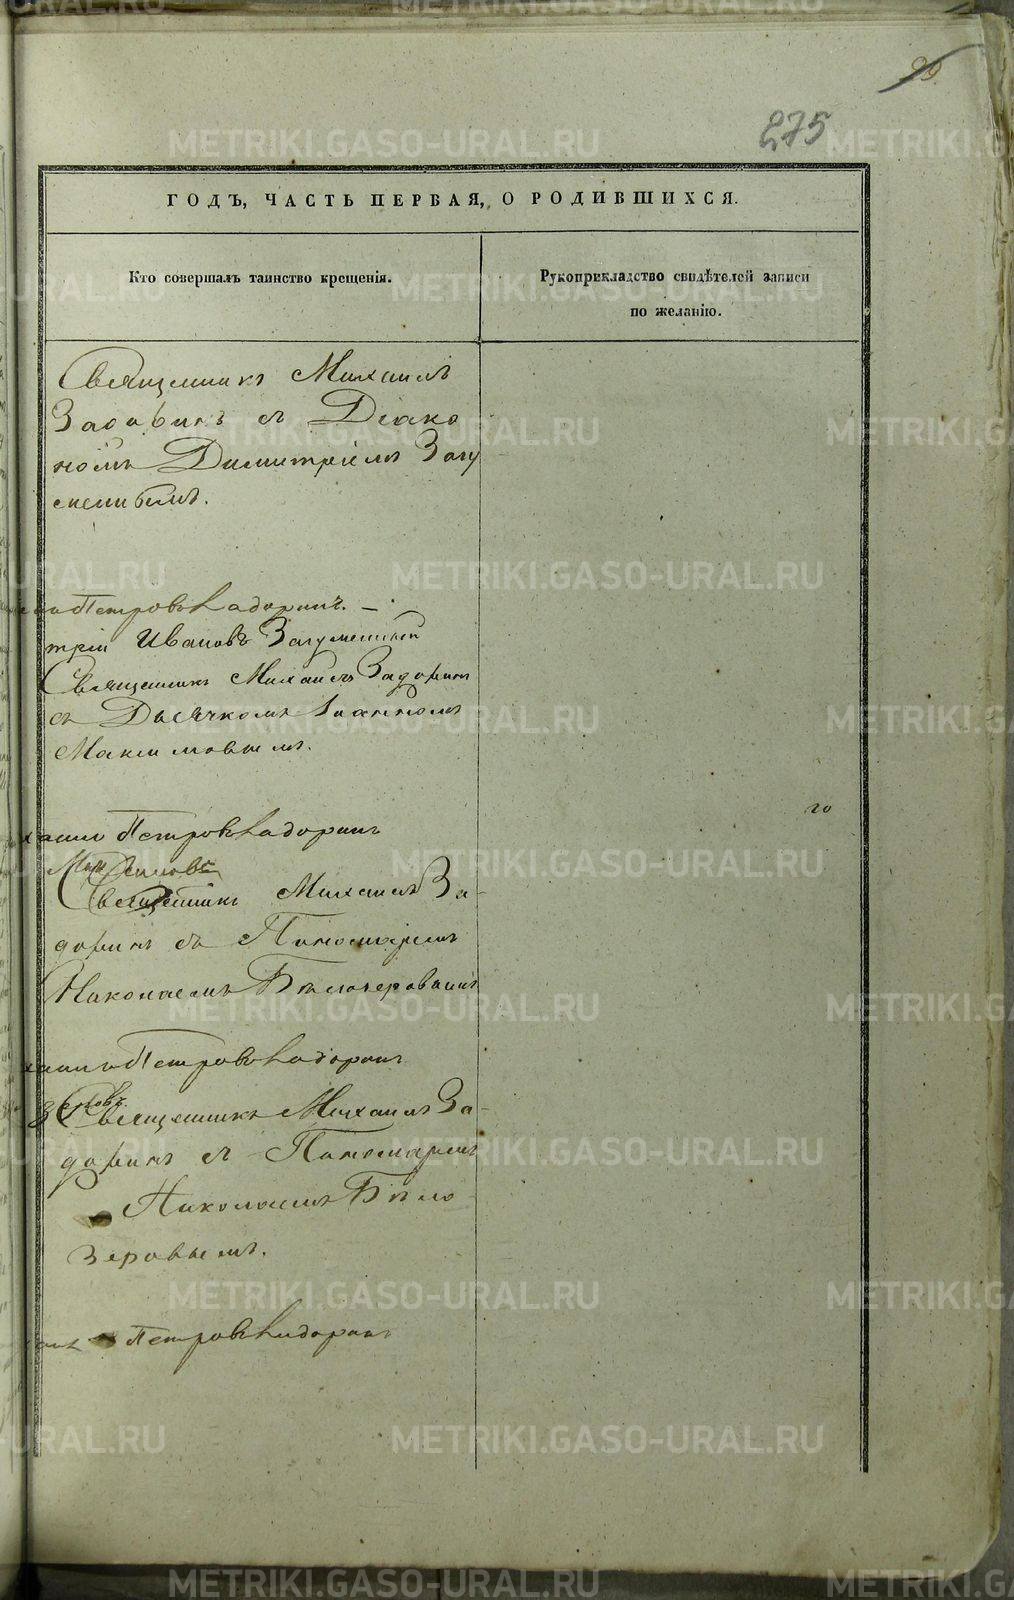 29.
275
ГОДЪ, ЧАСТЬ ПЕРВАЯ, О РОДИВШИХСЯ.
Кто совершалъ таинство крещенія.
Рукоприкладство свидѣтелей записи
по желанію.
Священникъ Михаилъ
Задоринъ съ Діако
номъ Димитріемъ Загу
меннымъ.
Петровъ Задоринъ. —
трій Ивановъ Загуменный
Священникъ Михаилъ Задоринъ
съ Дьячкомъ Іоанномъ
Максимовымъ.
хаилъ Петровъ Задоринъ
го
Священникъ Михаилъ За-
доринъ съ Пономаремъ
Николаемъ Бѣлозеровымъ
хаилъ Петровъ Задоринъ
зеровъ.
Священникъ Михаилъ За-
доринъ съ Пономаремъ
Николаемъ Бѣло
зеровымъ.
Петровъ Задоринъ
METRIKI.GASO-URAL.RU